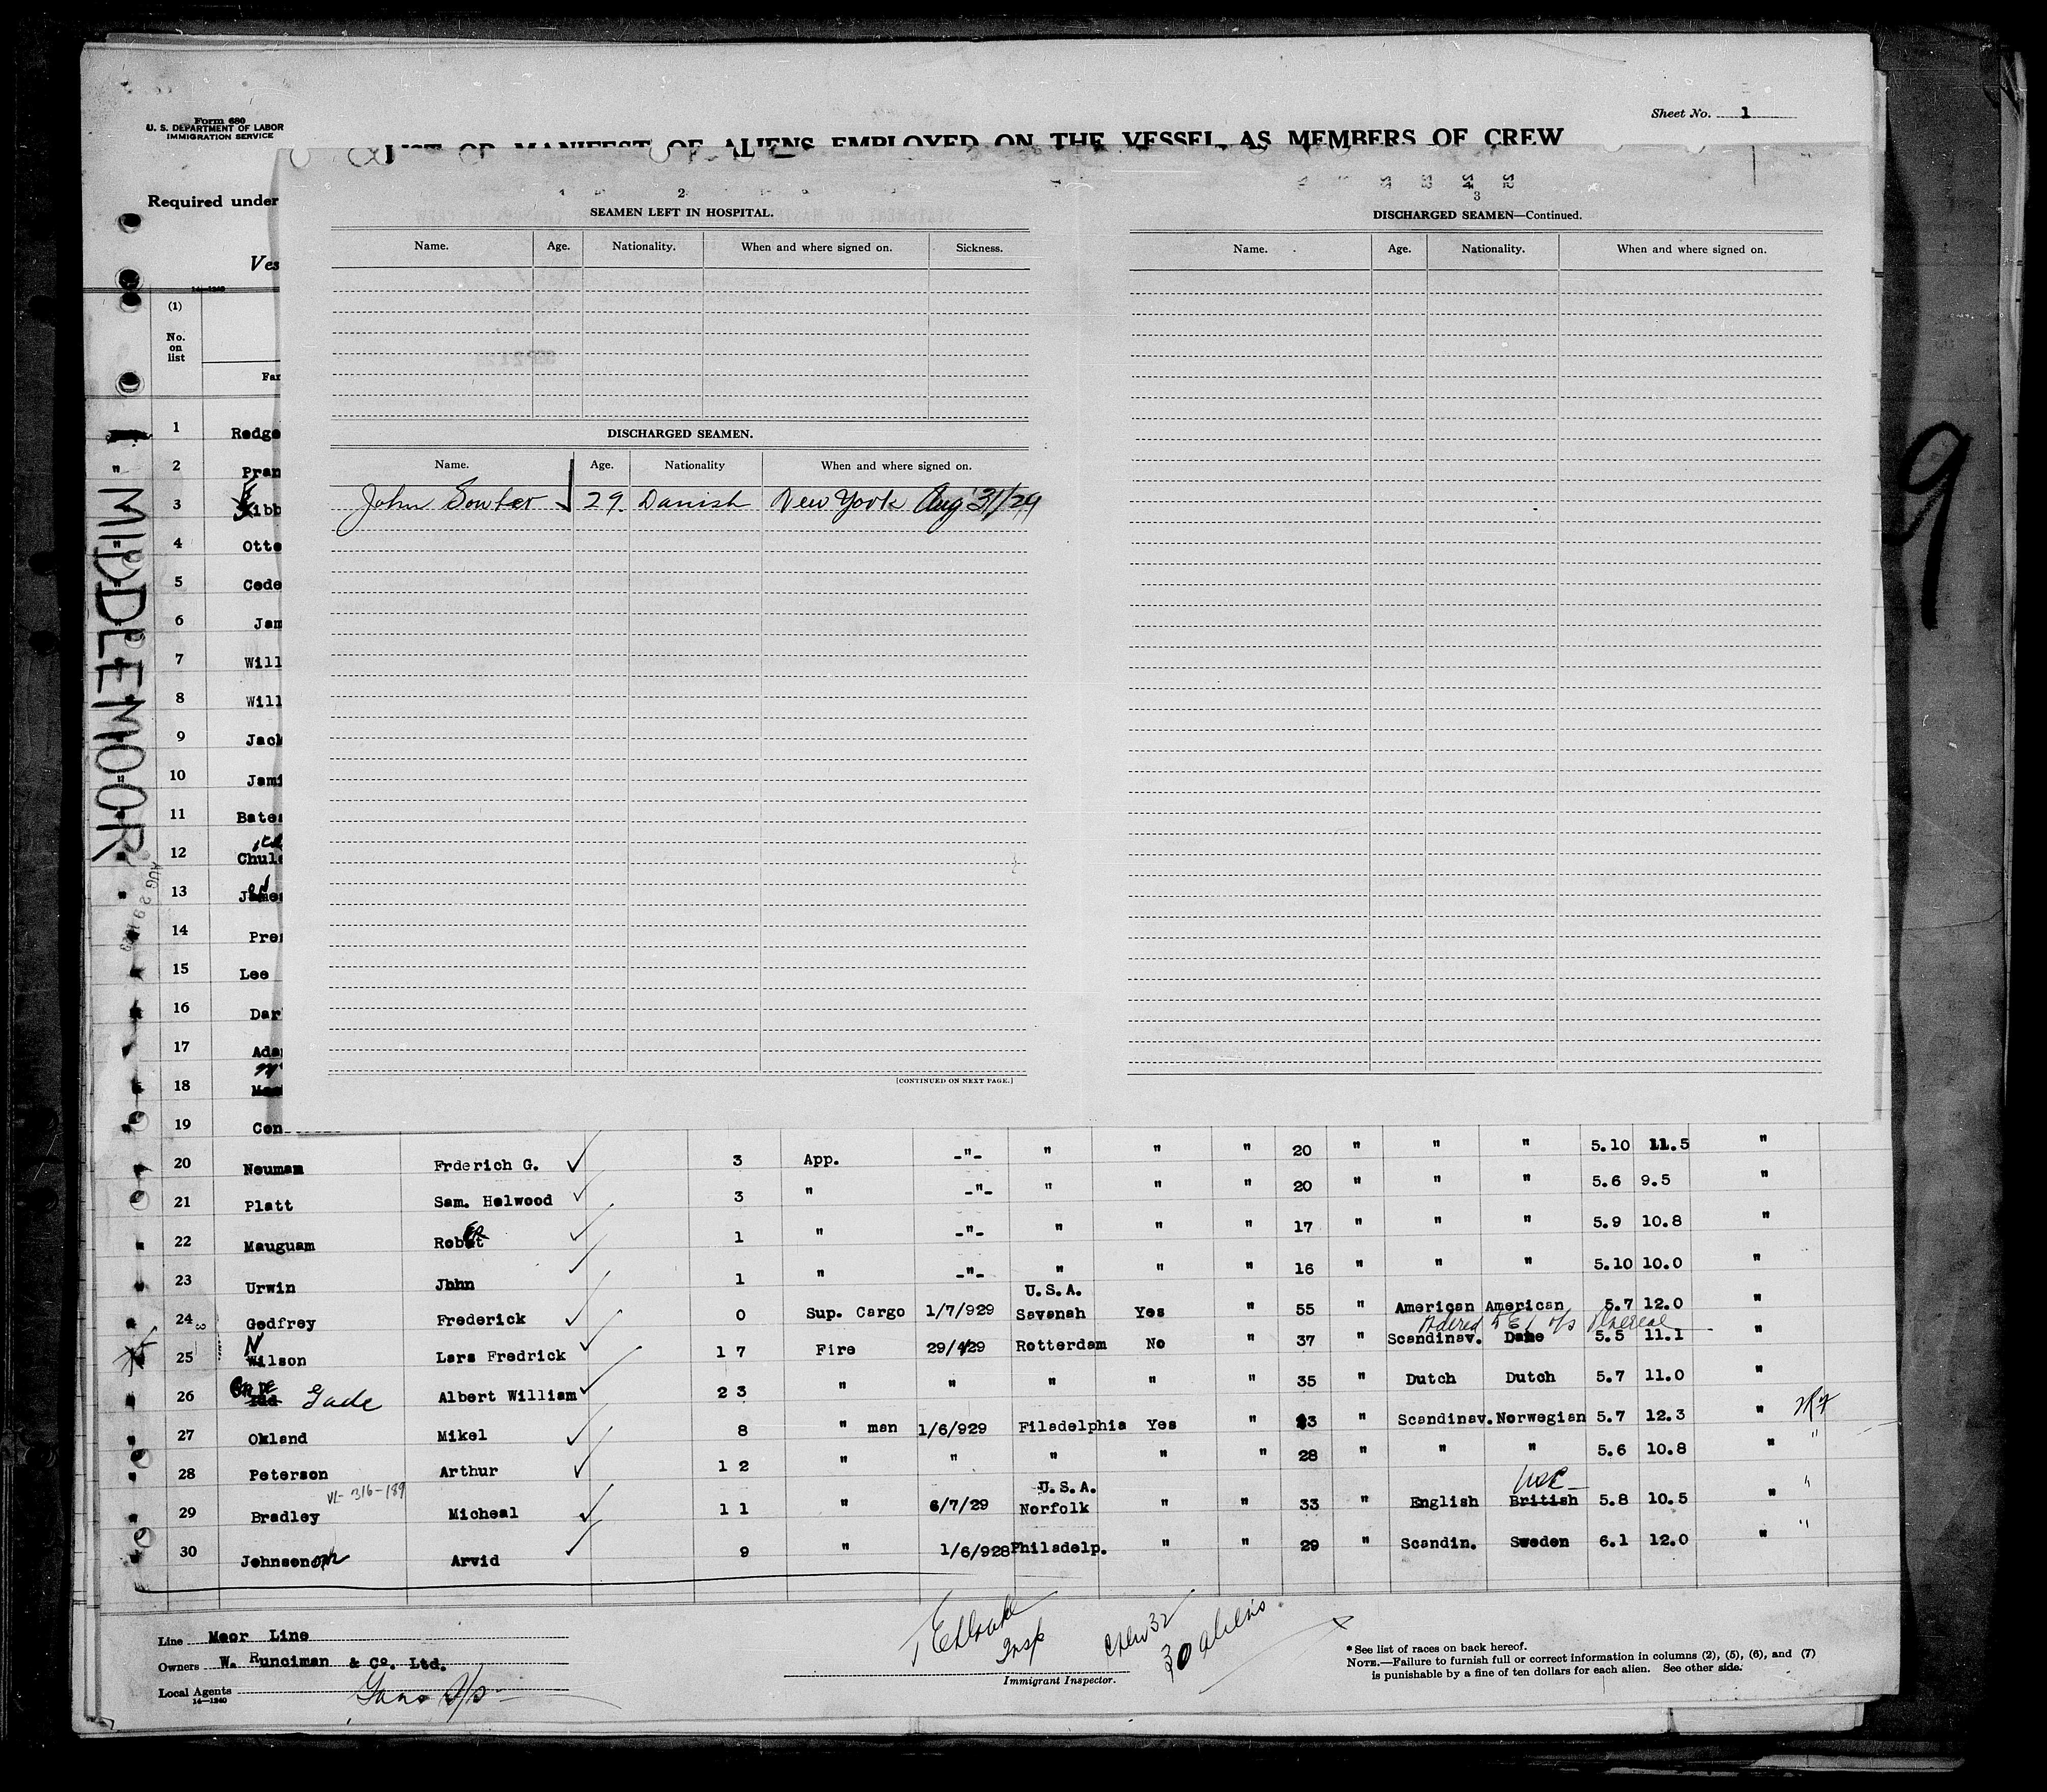 Form 680
U. S. DEPARTMENT OF LABOR
IMMIGRATION SERVICE
Sheet No. 1
LIST OR MANIFEST OF ALIENS EMPLOYED ON THE VESSEL AS MEMBERS OF CREW
Required under
Ves
14—1240
(1)
No.
on
list
Far
MIDDLEMOOR
AUG 29 1929
9
2
SEAMEN LEFT IN HOSPITAL.
Name. Age. Nationality. When and where signed on. Sickness.
DISCHARGED SEAMEN.
Name. Age. Nationality When and where signed on.
John Sowter 29. Danish New York Aug 31/29
[CONTINUED ON NEXT PAGE.]
3
DISCHARGED SEAMEN—Continued.
Name. Age. Nationality. When and where signed on.
1 Redge
2 Pran
3 ibb
4 Otte
5 Cede
6 Jam
7 Will
8 Will
9 Jack
10 Jami
11 Bates
12 Chule
13 James
14 Pren
15 Lee
16 Dar
17 Ada
18
19 Con
20 Neuman Frderich G. 3 App. -"- " " " 20 " " " 5.10 11.5 "
21 Platt Sam. Helwood 3 " -"- " " " 20 " " " 5.6 9.5 "
22 Mauguam Robet 1 " -"- " " " 17 " " " 5.9 10.8 "
23 Urwin Jhhn 1 " -"- " " " 16 " " " 5.10 10.0 "
U.S.A.
24 Godfrey Frederick 0 Sup. Cargo 1/7/929 Savenah Yes " 55 " American American 5.7 12.0 "
25 Wilson Lars Fredrick 1 7 Fire 29/4/29 Rotterdam No " 37 " Scandinav. Dane 5.5 11.1 "
26 Gade Albert William 2 3 " " " " " 35 " Dutch Dutch 5.7 11.0 "
27 Okland Mikel 8 " man 1/6/929 Filadelphia Yes " 43 " Scandinav. Norwegian 5.7 12.3 "
28 Peterson Arthur 1 2 " " " " " 28 " " " 5.6 10.8 " "
VL-316-189
U.S.A.
29 Bradley Micheal 1 1 " 6/7/29 Norfolk " " 33 " English British 5.8 10.5 " "
30 Johnson Arvid 9 " 1/6/928 Philadelp. " " 29 " Scandin. Sweden 6.1 12.0 " "
Line Moor Line
Owners W. Runciman & Co. Ltd.
Local Agents Gans S/S
14—1240
Insp
Crew 32
30 aliens
Immigrant Inspector.
* See list of races on back hereof.
NOTE.—Failure to furnish full or correct information in columns (2), (5), (6), and (7)
is punishable by a fine of ten dollars for each alien. See other side.